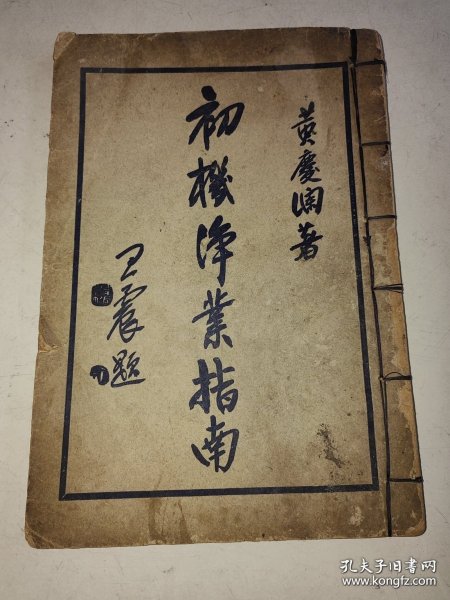 黄慶瀾著
初機淨業指南
王震題
孔夫子旧书网
www.kongfz.com